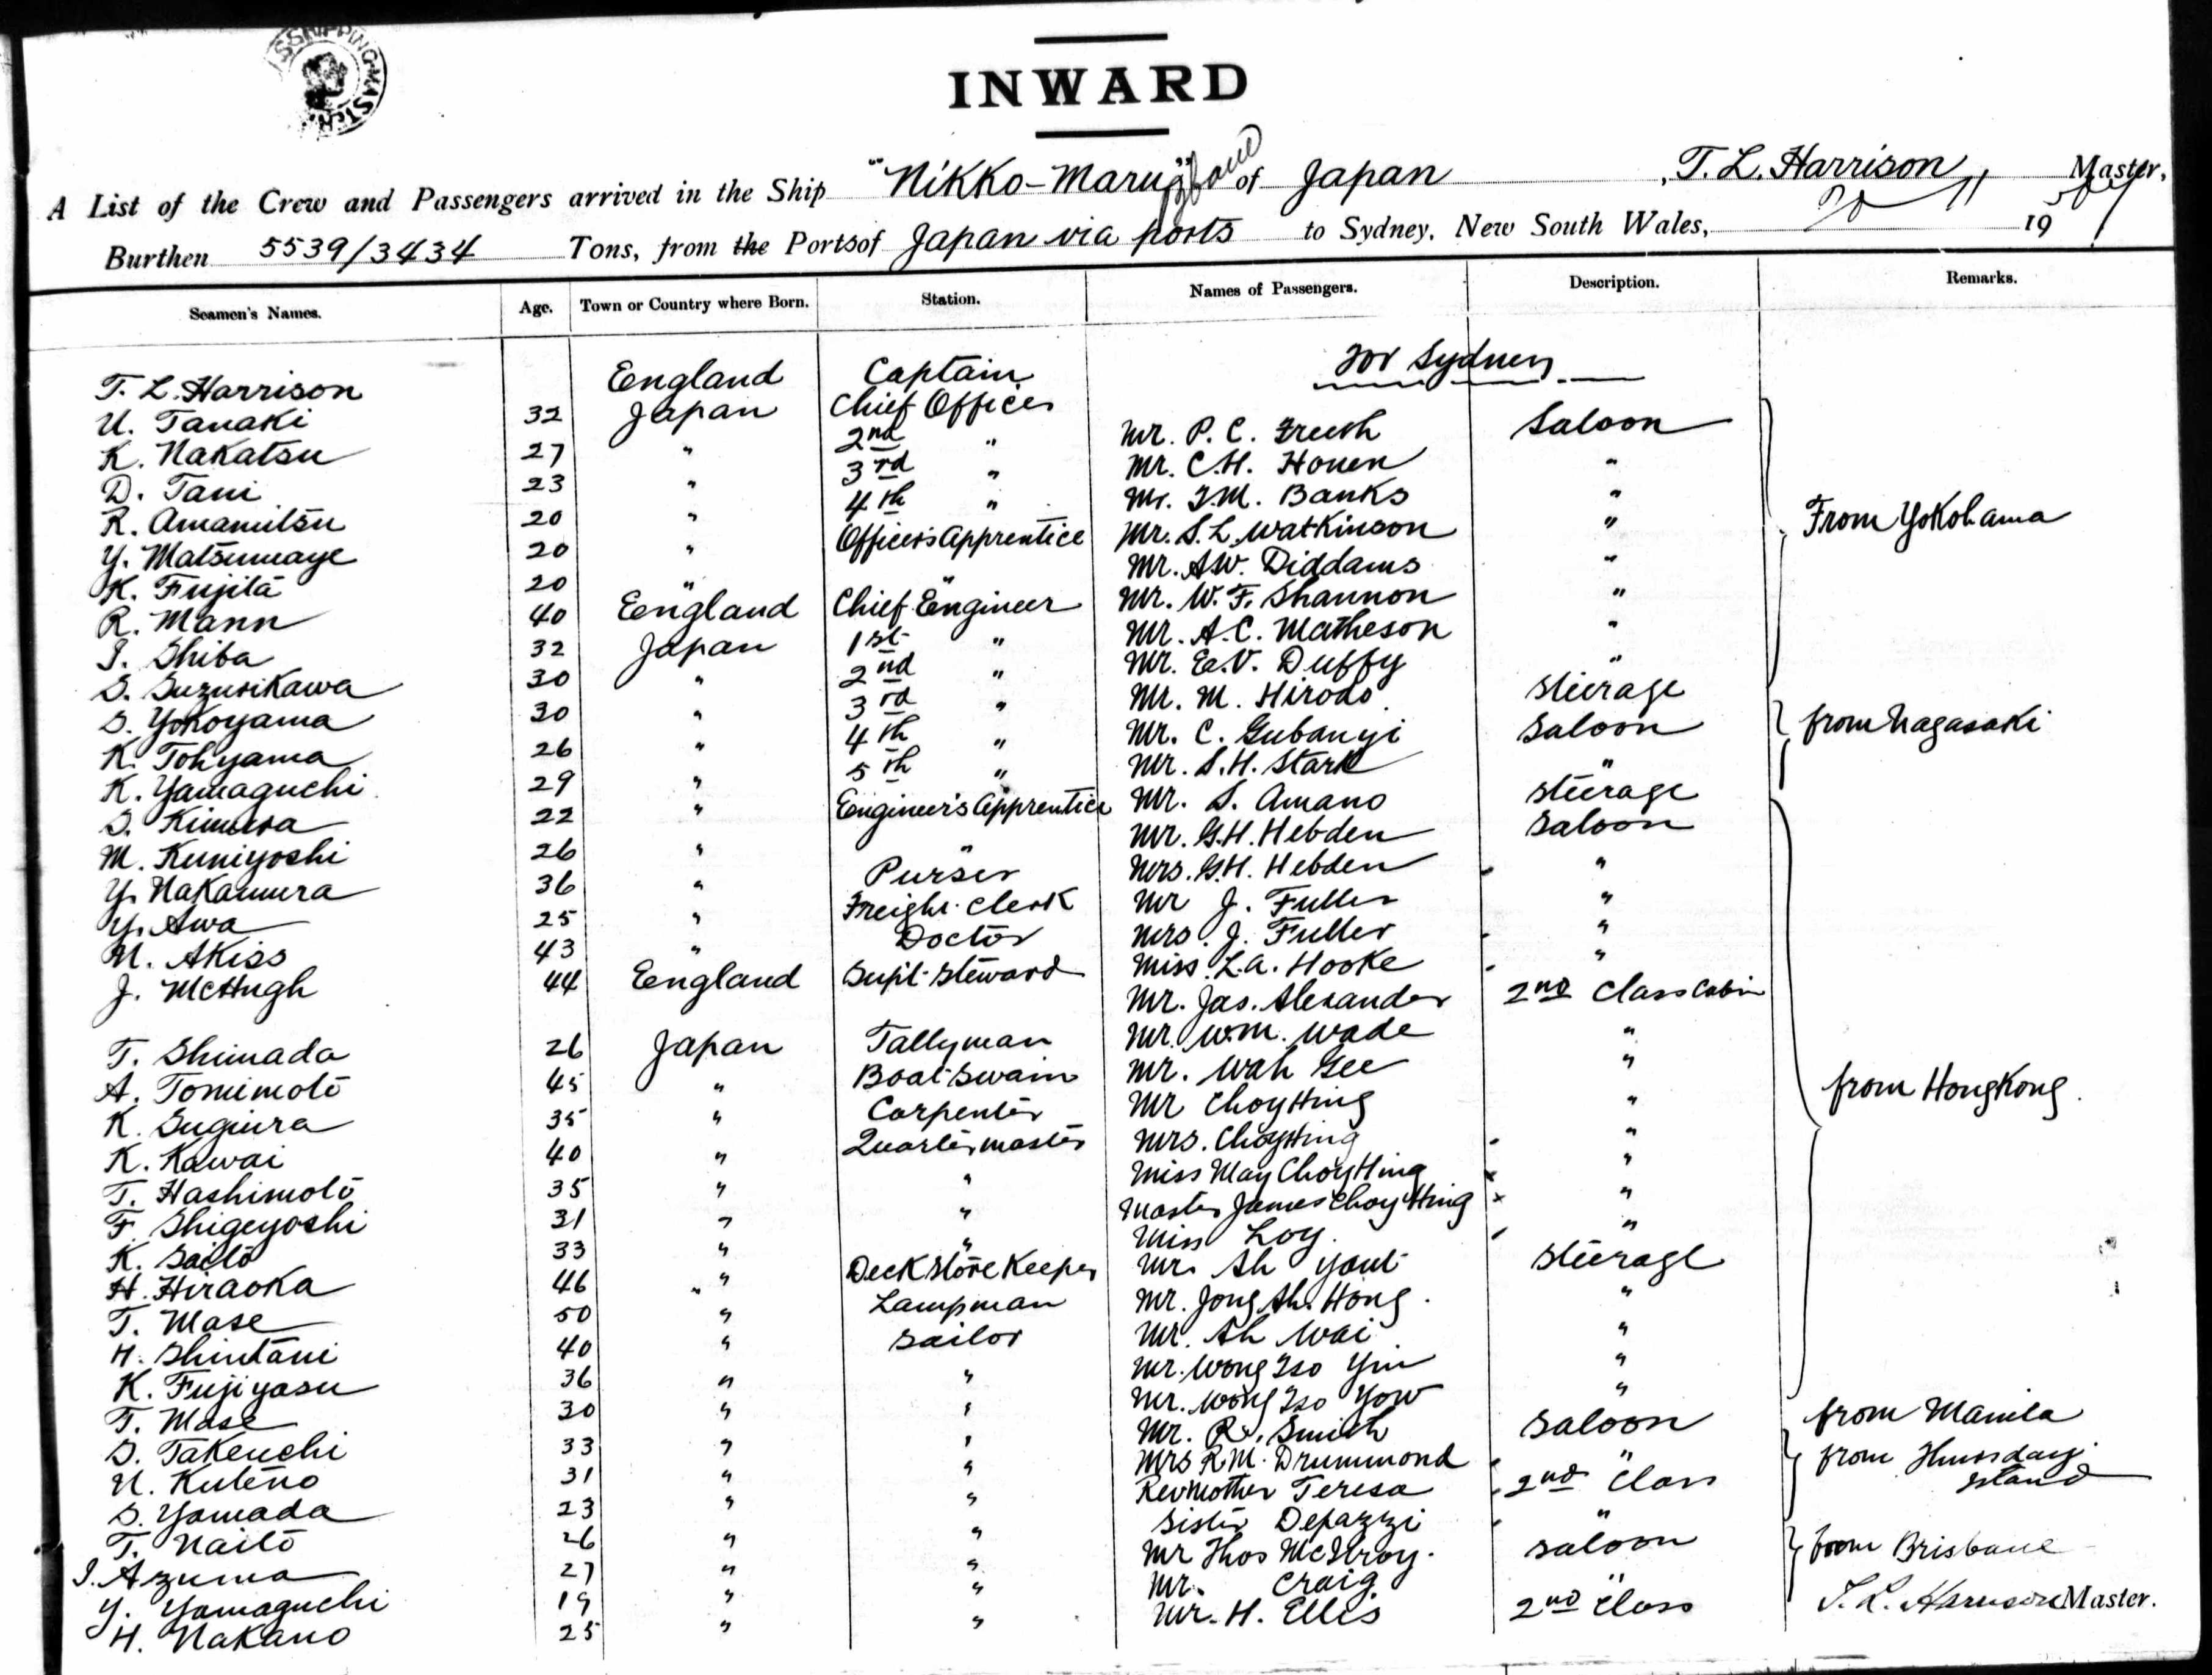 SHIPPING MASTER
INWARD
A List of the Crew and Passengers arrived in the Ship "Nikko-Maru" of Japan, T. L. Harrison Master,
Burthen 5539/3434 Tons, from the Ports of Japan via ports to Sydney, New South Wales, 19
Seamen's Names. Age. Town or Country where Born. Station. Names of Passengers. Description. Remarks.
for Sydney
T. L. Harrison England Captain
U. Tanaki 32 Japan Chief Officer
K. Nakatsu 27 " 2nd " Mr. P. C. Saloon
D. Tani 23 " 3rd " Mr. C. H. Honen "
R. Amamitsu 20 " 4th " Mr. Banks "
Y. Matsumaye 20 " Officer's Apprentice Mr. S. L. Watkinson " From Yokohama
K. Fujita 20 " " Mr. A W. Diddams "
R. Mann 40 England Chief Engineer Mr. W. F. Shannon "
I. Shiba 32 Japan 1st " Mr. A. C. Matheson "
S. Suzurikawa 30 " 2nd " Mr. E. V. Duffy "
S. Yokoyama 30 " 3rd " Mr. M. Hirodo steerage
K. Tohyama 26 " 4th " Mr. C. Gubanyi Saloon from Nagasaki
K. Yamaguchi 29 " 5th " Mr. S. H. Stark "
S. Kimura 22 " Engineer's Apprentice Mr. S. Amano steerage
M. Kuniyoshi 26 " " Mr. G. H. Hebden Saloon
Y. Nakamura 36 " Purser Mrs. G. H. Hebden "
Y. Awa 25 " Freight Clerk Mr J. Fuller "
M. Akiss 43 " Doctor Mrs. J. Fuller "
J. McHugh 44 England Supt Steward Miss. L. A. Hooke "
Mr. Jas. Alexander 2nd Class Cabin
T. Shimada 26 Japan Tallyman Mr. Wm. Wade "
A. Tomimoto 45 " Boat Swain Mr. Wah Gee "
K. Sugiura 35 " Carpenter Mr Choy Hing " from HongKong.
K. Kawai 40 " Quarter master Mrs. Choy Hing "
T. Hashimoto 35 " " Miss May Choy Hing "
F. Shigeyoshi 31 " " Master James Choy Hing "
K. Saito 33 " " Miss Loy. "
H. Hiraoka 46 " Deck Store Keeper Mr. Ah steerage
T. Mase 50 " Lampman Mr. Jong Ah Hong. "
H. Shintani 40 " Sailor Mr. Ah Wai "
K. Fujiyasu 36 " " Mr. Wong Tso Yin "
T. Mase 30 " " Mr. Wong Tso Yow "
S. Takeuchi 33 " " Mr. R. Smith Saloon from Manila
U. Kuteno 31 " " Mrs R. M. Drummond " from Thursday Island
S. Yamada 23 " " Rev Mother Teresa 2nd Class
T. Naito 26 " " Sister Depazzi "
I. Azuma 27 " " Mr Thos McIlroy. Saloon from Brisbane
Y. Yamaguchi 19 " " Mr. Craig "
H. Nakano 25 " " Mr. H. Ellis 2nd Class T. L. Harrison Master.